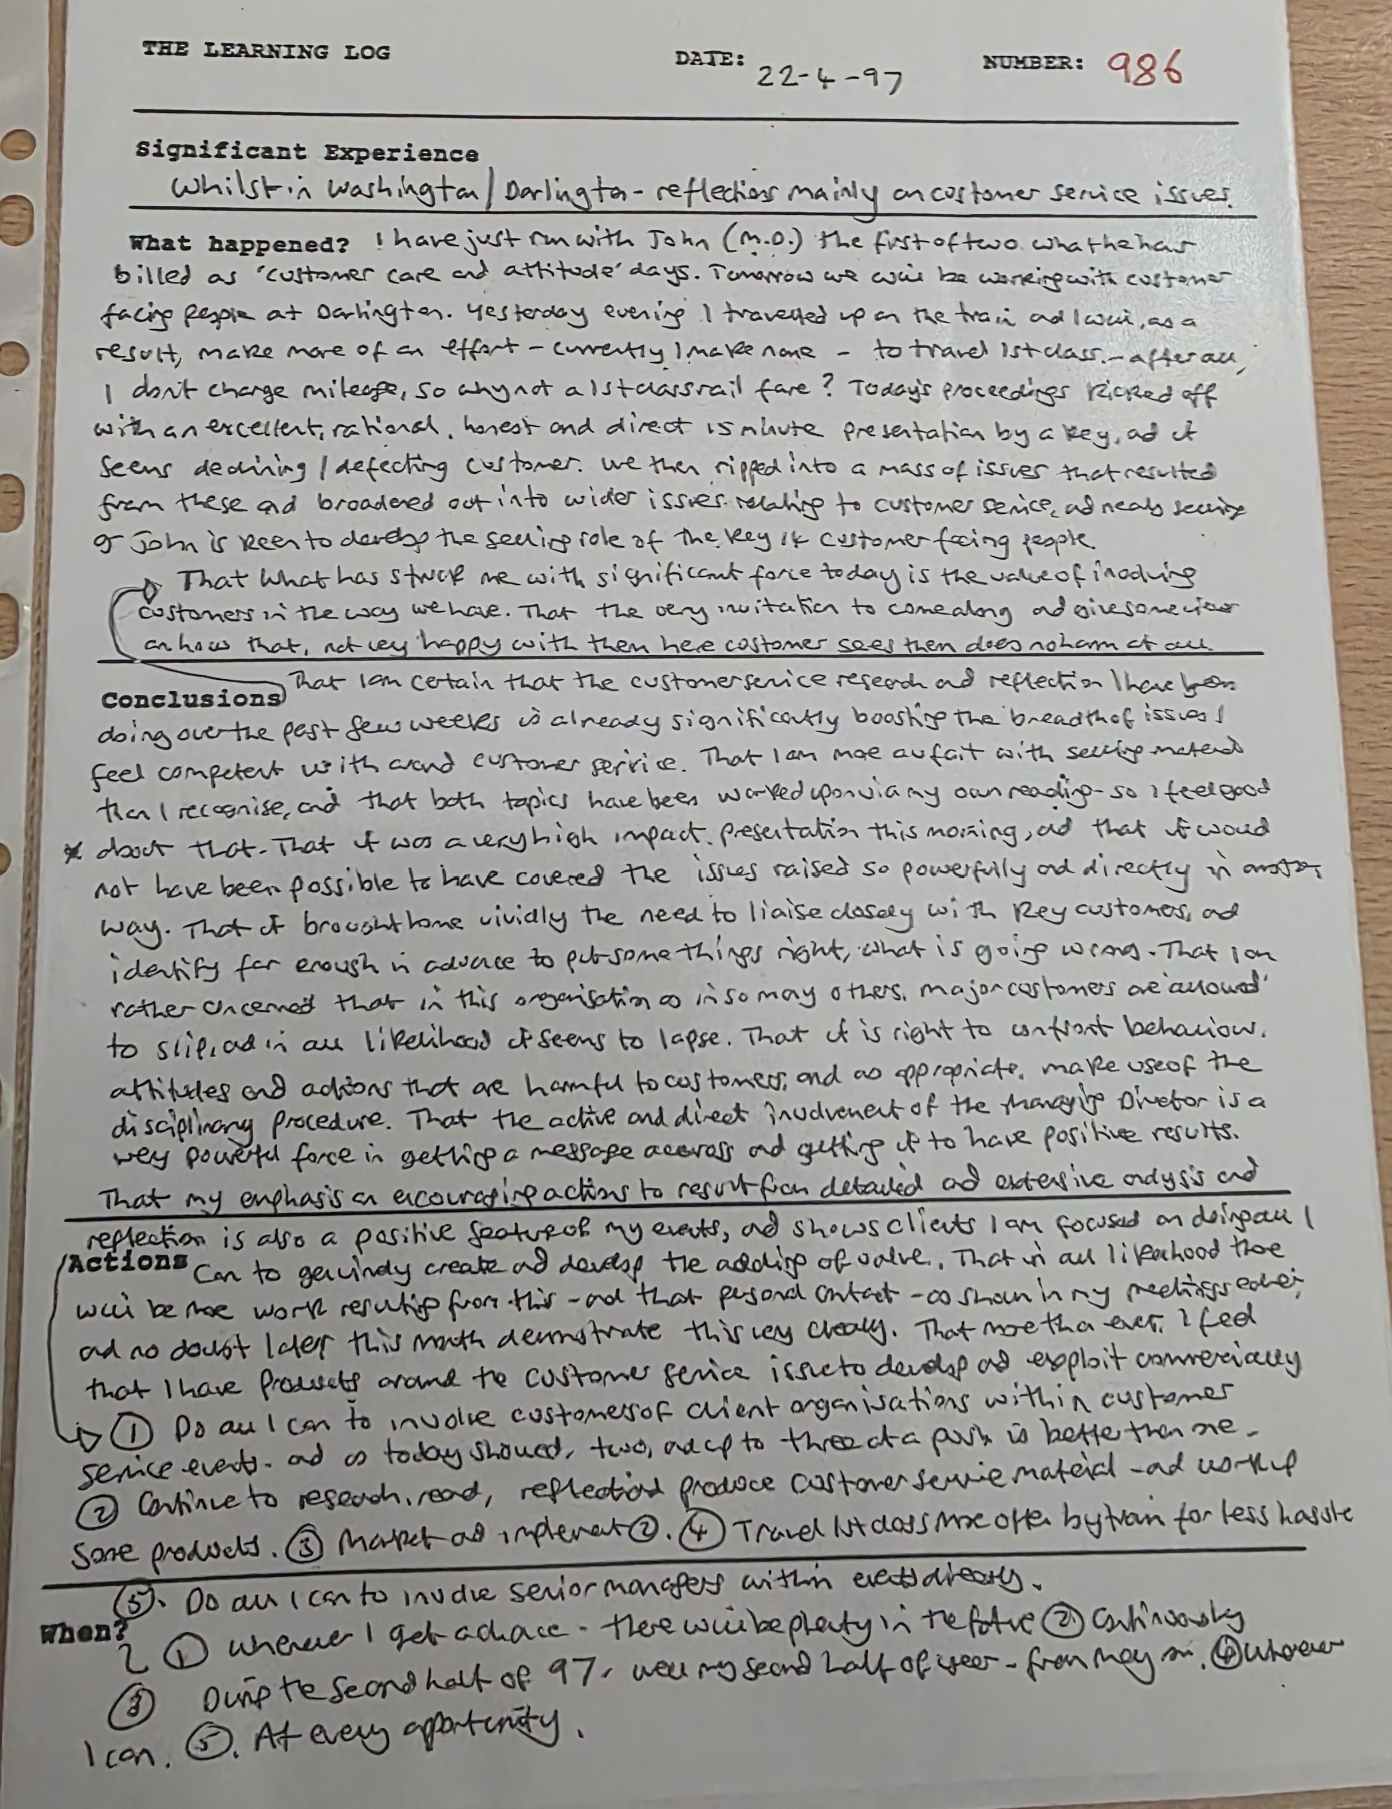 THE LEARNING LOG DATE: 22-4-97 NUMBER: 986
Significant Experience
Whilst in Washington / Darlington - reflections mainly on customer service issues.
What happened? I have just run with John (M.D.) the first of two what he has
billed as 'customer care and attitude' days. Tomorrow we will be working with customer
facing people at Darlington. Yesterday evening I travelled up on the train and I will, as a
result, make more of an effort - currently I make none - to travel 1st class. - after all,
I don't charge mileage, so why not a 1st class rail fare? Today's proceedings kicked off
with an excellent, rational, honest and direct 15 minute presentation by a key, and it
seems declining / defecting customer. We then ripped into a mass of issues that resulted
from these and broadened out into wider issues relating to customer service, and
John is keen to develop the selling role of the key 14 customer facing people.
That what has struck me with significant force today is the value of involving
customers in the way we have. That the very invitation to come along and give some view
on how that, not very happy with them here customer sees them does no harm at all.
Conclusions That I am certain that the customer service research and reflection I have been
doing over the past few weeks is already significantly boosting the breadth of issues I
feel competent with around customer service. That I am more au fait with selling material
than I recognise, and that both topics have been worked upon via my own reading - so I feel good
* about that. That it was a very high impact presentation this morning, and that it would
not have been possible to have covered the issues raised so powerfully and directly in another
way. That it brought home vividly the need to liaise closely with key customers, and
identify far enough in advance to put some things right, what is going wrong. That I am
rather concerned that in this organisation as in so many others, major customers are 'allowed'
to slip, and in all likelihood it seems to lapse. That it is right to confront behaviour,
attitudes and actions that are harmful to customers, and as appropriate, make use of the
disciplinary procedure. That the active and direct involvement of the Managing Director is a
very powerful force in getting a message across and getting it to have positive results.
That my emphasis on encouraging actions to result from detailed and extensive analysis and
reflection is also a positive feature of my events, and shows clients I am focused on doing all I
Actions can to genuinely create and develop the adding of value. That in all likelihood there
will be more work resulting from this - and that personal contact - as shown in my meetings earlier,
and no doubt later this month demonstrate this very clearly. That more than ever, I feel
that I have products around the customer service issue to develop and exploit commercially
① Do all I can to involve customers of client organisations within customer
service events - and as today showed, two, and up to three at a push is better than one.
② Continue to research, read, reflect and produce customer service material - and work up
some products. ③ Market and implement ②. ④ Travel 1st class more often by train for less hassle
⑤. Do all I can to involve senior managers within events directly.
When? ① Whenever I get a chance - there will be plenty in the future ② Continuously
③ During the second half of 97, well my second half of year - from May on. ④ Whenever
I can. ⑤. At every opportunity.